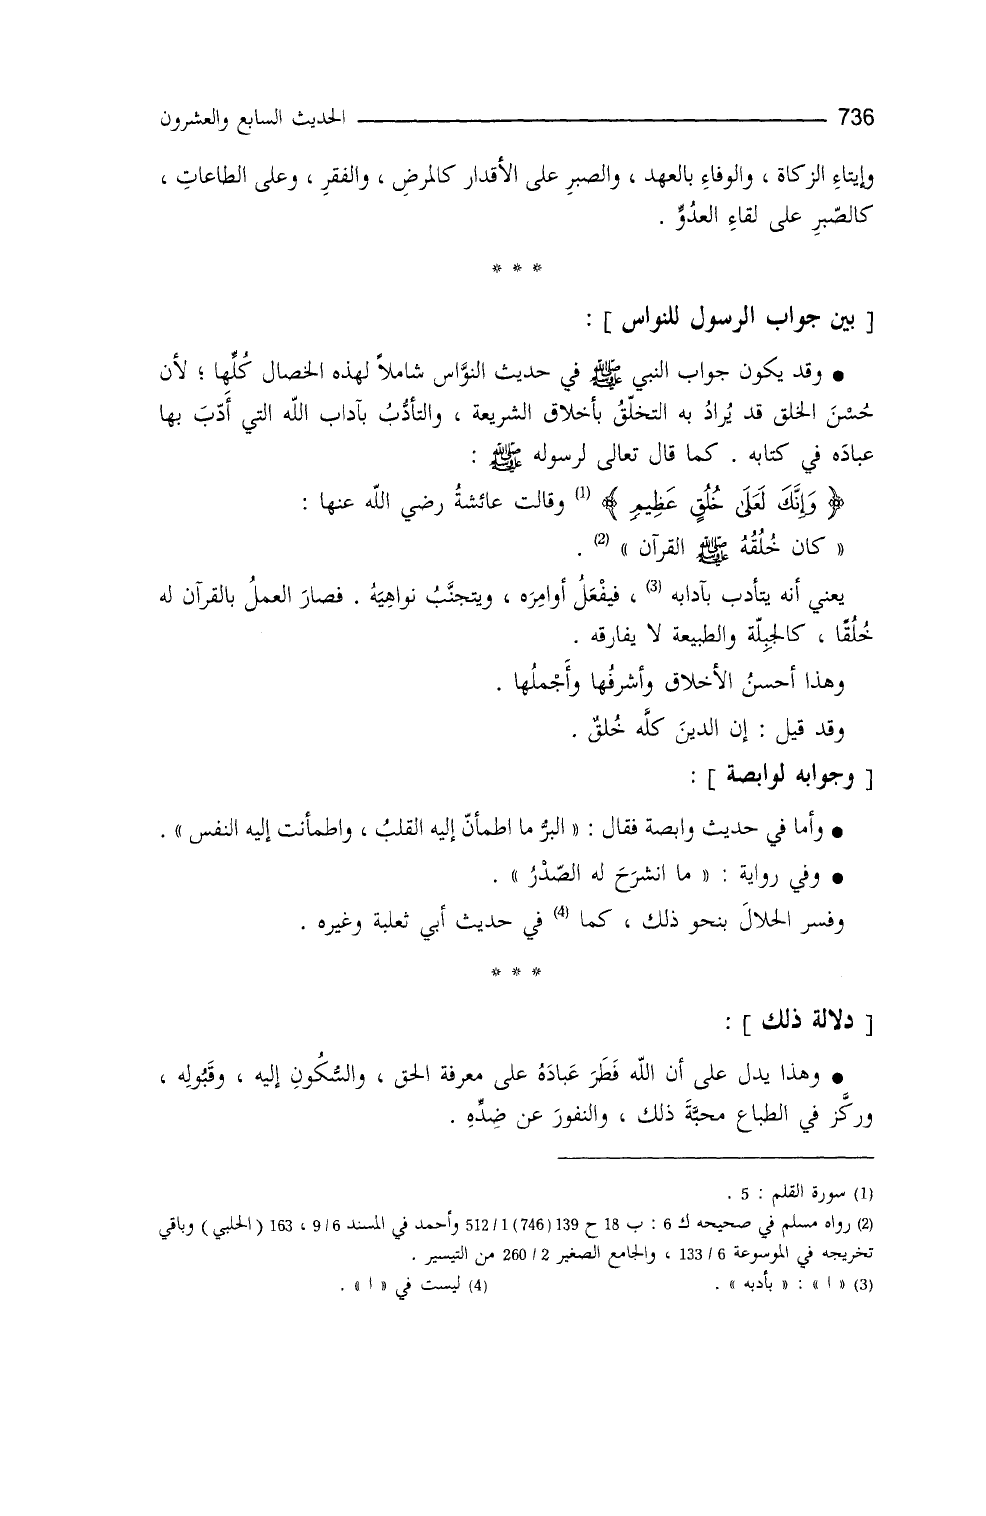 736 الحديث السابع والعشرون
وإيتاءِ الزكاة ، والوفاءِ بالعهد ، والصبرِ على الأقدار كالمرضِ ، والفقرِ ، وعلى الطاعاتِ ،
كالصّبرِ على لقاءِ العدُوِّ .
* * *
[ بين جواب الرسول للنواس ] :
● وقد يكون جواب النبي ﷺ في حديث النوَّاس شاملاً لهذه الخصال كُلِّها ؛ لأن
حُسْنَ الخلق قد يُرادُ به التخلّقُ بأخلاق الشريعة ، والتأدُّبُ بآداب اللّه التي أَدّبَ بها
عبادَه في كتابه . كما قال تعالى لرسوله ﷺ :
﴿ وَإِنَّكَ لَعَلَىٰ خُلُقٍ عَظِيمٍ ﴾ (1) وقالت عائشةُ رضي اللّه عنها :
« كان خُلُقُهُ ﷺ القرآن » (2) .
يعني أنه يتأدب بآدابه (3) ، فيفْعَلُ أوامِرَه ، ويتجنَّبُ نواهِيَهُ . فصارَ العملُ بالقرآن له
خُلُقًا ، كالجِبِلّة والطبيعة لا يفارقه .
وهذا أحسنُ الأخلاق وأشرفُها وأَجْملُها .
وقد قيل : إن الدينَ كلَّه خُلقٌ .
[ وجوابه لوابصة ] :
● وأما في حديث وابصة فقال : « البرُّ ما اطمأنّ إليه القلبُ ، واطمأنت إليه النفس » .
● وفي رواية : « ما انشرَحَ له الصّدْرُ » .
وفسر الحلالَ بنحو ذلك ، كما (4) في حديث أبي ثعلبة وغيره .
* * *
[ دلالة ذلك ] :
● وهذا يدل على أن اللّه فَطَرَ عَبادَهُ على معرفة الحق ، والسُّكُونِ إليه ، وقَبُولِه ،
وركَّز في الطباع محبَّةَ ذلك ، والنفورَ عن ضِدِّهِ .
(1) سورة القلم : 5 .
(2) رواه مسلم في صحيحه ك 6 : ب 18 ح 139 (746) 1 / 512 وأحمد في المسند 6 / 9 ، 163 ( الحلبي ) وباقي
تخريجه في الموسوعة 6 / 133 ، والجامع الصغير 2 / 260 من التيسير .
(3) « ا » : « بأدبه » . (4) ليست في « ا » .